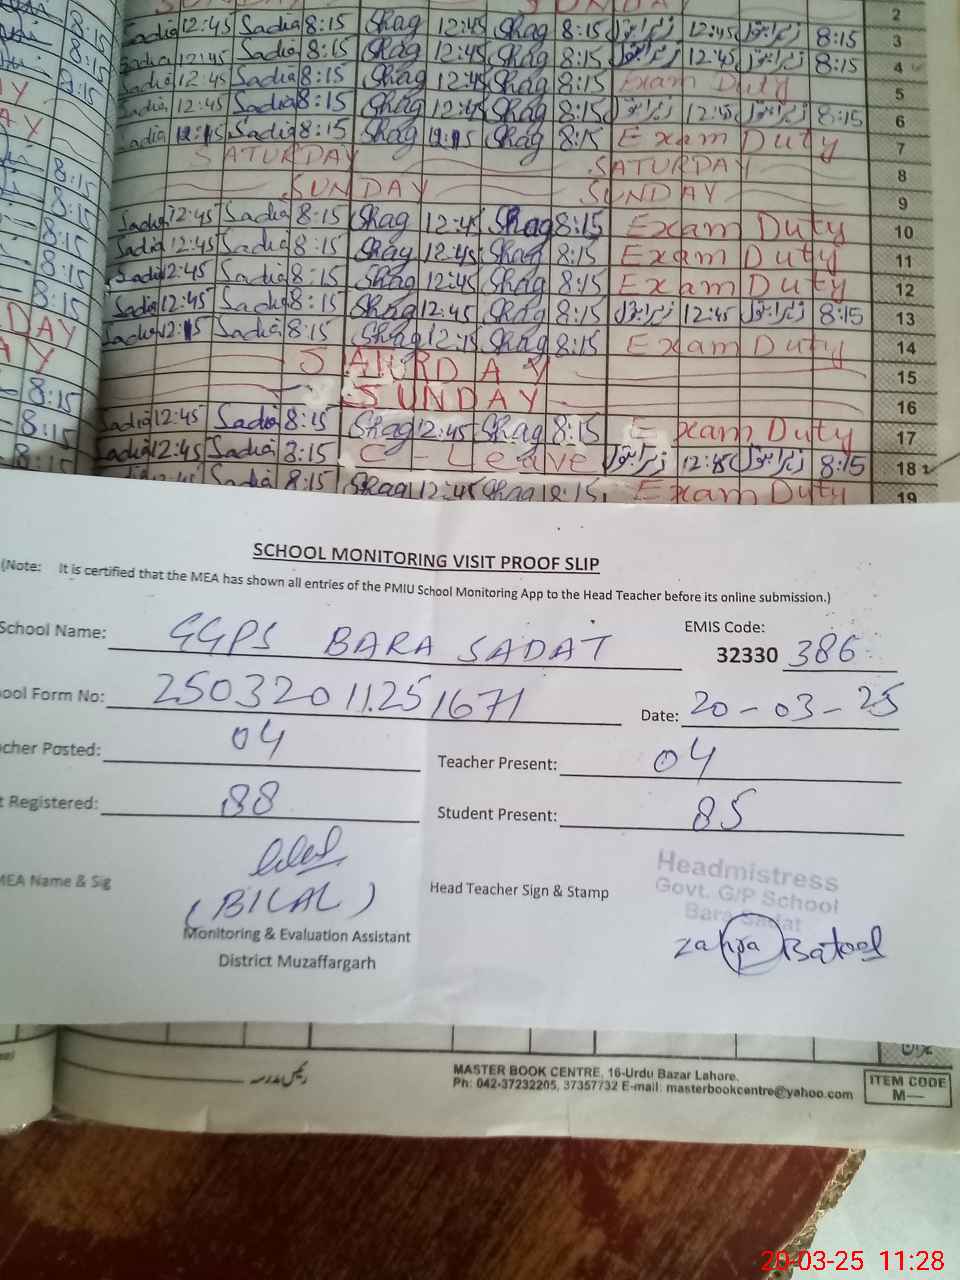 SUNDAY 2
8:15 Sadia 12:45 Sadia 8:15 Shag 12:45 Shag 8:15 12:45 8:15 3
8:15 Sadia 12:45 Sadia 8:15 Shag 12:45 Shag 8:15 12:45 8:15 4
8:15 Sadia 12:45 Sadia 8:15 Shag 12:45 Shag 8:15 Exam Duty 5
Sadia 12:45 Sadia 8:15 Shag 12:45 Shag 8:15 12:45 8:15 6
Sadia Sadia 8:15 Shag Shag 8:15 Exam Duty 7
SATURDAY SATURDAY 8
8:15 SUNDAY SUNDAY 9
8:15 Sadia 12:45 Sadia 8:15 Shag 12:45 Shag 8:15 Exam Duty 10
8:15 Sadia 12:45 Sadia 8:15 Shag 12:45 Shag 8:15 Exam Duty 11
8:15 Sadia 12:45 Sadia 8:15 Shag 12:45 Shag 8:15 Exam Duty 12
8:15 Sadia 12:45 Sadia 8:15 Shag 12:45 Shag 8:15 12:45 8:15 13
DAY Sadia Sadia 8:15 Shag Shag 8:15 Exam Duty 14
15
SUNDAY 16
8:15 Sadia 12:45 Sadia 8:15 Shag 12:45 Shag 8:15 Exam Duty 17
8:15 Sadia 12:45 Sadia 8:15 C-Leave 12:45 8:15 18
8:15 12:45 Sadia 8:15 Shag 12:45 Shag 8:15 Exam Duty 19
SCHOOL MONITORING VISIT PROOF SLIP
(Note: It is certified that the MEA has shown all entries of the PMIU School Monitoring App to the Head Teacher before its online submission.)
School Name: GGPS BARA SADAT EMIS Code: 32330 386
ool Form No: 25032011251671 Date: 20-03-25
cher Posted: 04 Teacher Present: 04
t Registered: 88 Student Present: 85
MEA Name & Sig (BILAL) Head Teacher Sign & Stamp
Headmistress
Govt. G/P School
Bara Sadat
Zahra Batool
Monitoring & Evaluation Assistant
District Muzaffargarh
رئیس مدرسہ
MASTER BOOK CENTRE, 16-Urdu Bazar Lahore.
Ph: 042-37232205, 37357732 E-mail: masterbookcentre@yahoo.com
ITEM CODE
M—
20-03-25 11:28